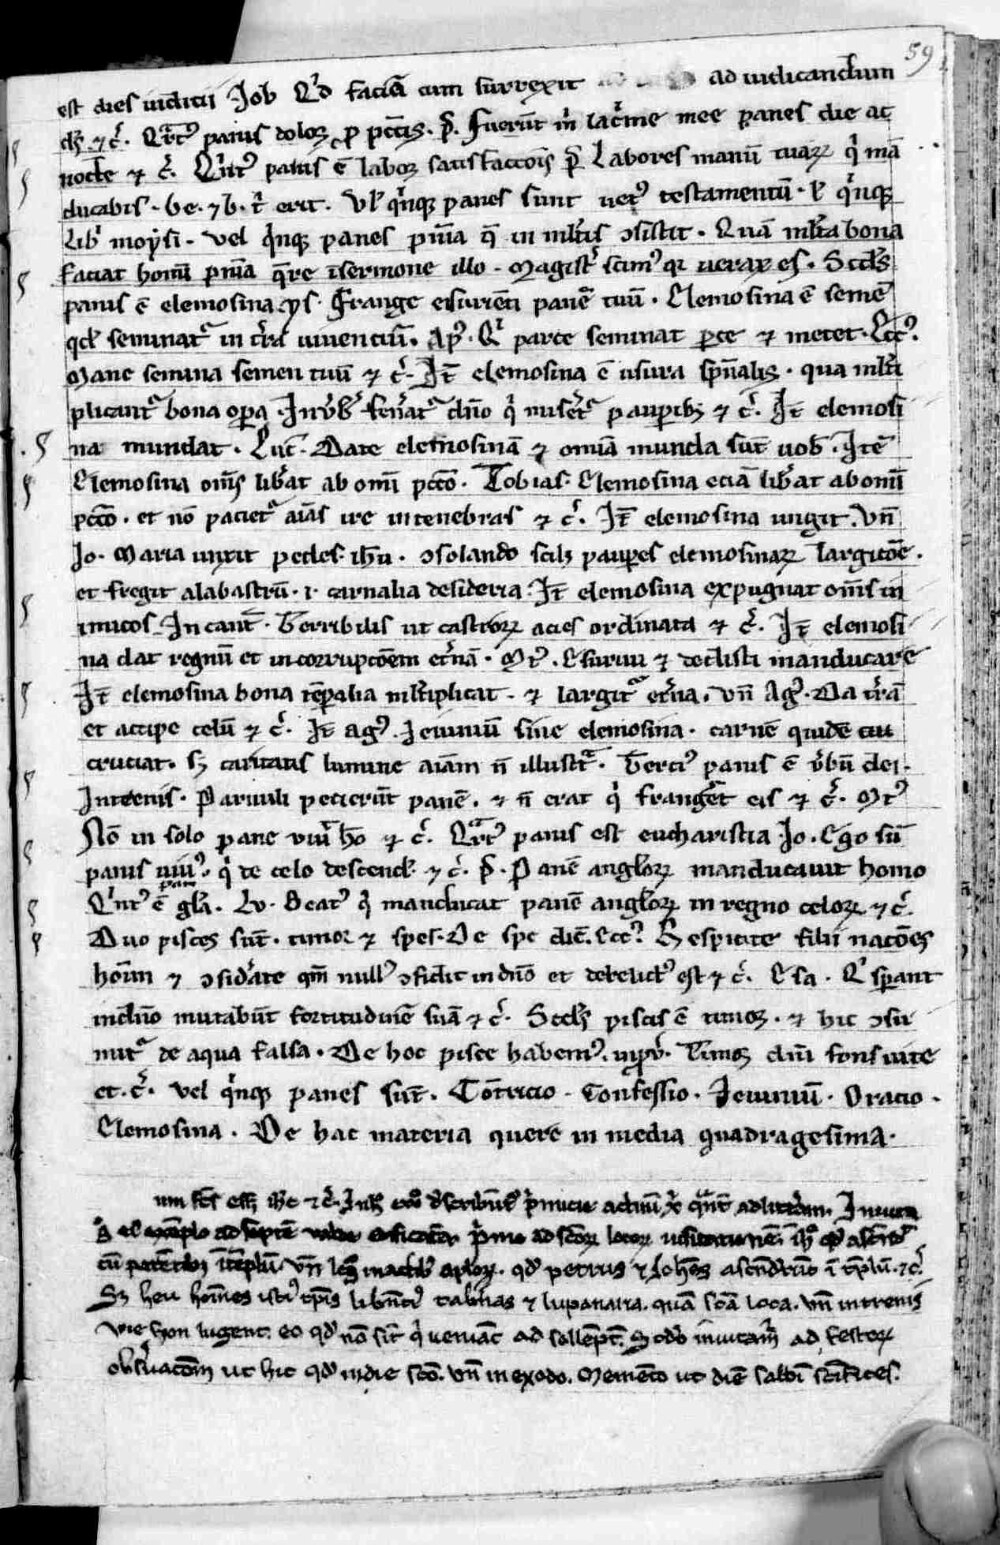 59
est dies iudicii Job Qd̕ faciā cum surrexit ad iudicandum
ds̄ ⁊ c̄. Qrt᷒ panis dolor ꝓ pcc̄is. p̄. Fuerūt m̄ lac̕me mee panes die ac
nocte ⁊ c̄. Qi̕nt᷒ panis ē labor satisfacc̄ois p̄ Labores manū tuaꝝ q̕ mā
ducabis. be. ⁊ b. t̄ erit. Vl̕ q̕nqꝫ panes sunt uet᷒ testamentū. l̕ q̕nqꝫ
Lib̕ moysi. Vel q̕nqꝫ panes pn̄ia q̄ in ml̕tis ↄsistit. Quā ml̕ta bona
faciat homī pn̄ia q̄re ī sermone illo. Magist̕ scim᷒ qr uerax es. Scd̄s
panis ē elemosina. ys. Frange esurienti panē tuū. Elemosina ē semē
qd̕ seminat᷑ in t̕ra viventiū. Ap᷒. Qi̕ parce seminat ꝑce ⁊ metet. Ecc᷒.
Mane semina semen tuū ⁊ c̄. It̄ elemosina ē usura sp̄ualis. qua ml̕ti
plicant᷑ bona oꝑa. In ꝓv̕b̕ fen̕at᷑ dn̄o q̕ miser̕t᷑ pauꝑibꝫ ⁊ c̄. It̄ elemosi
na mundat. Luc̄. Date elemosinā ⁊ omīa munda sūt uob̄. Itē
Elemosina om̄s lib̕at ab omī pcc̄o. Tobias. Elemosina eciā lib̕at ab omī
pcc̄o. et nō paciet᷑ aīas ire in tenebras ⁊ c̄. It̄ elemosina ungit. vn̄
Jo. Maria unxit pedes ih̄u. ↄsolando scilꝫ pauꝑes elemosinaꝝ largic̄oe.
et fregit alabastrū. i. carnalia desideria. It̄ elemosina expugnat om̄s in
imicos. In cant̄. Terribilis ut castroꝝ acies ordinata ⁊ c̄. It̄ elemosi
na dat regnū et incorrupc̄oem et̕nā. Mt᷒. Esuriui ⁊ dedisti manducare
It̄ elemosina bona tēꝑalia ml̕tiplicat. ⁊ largit᷑ et̕na. vn̄ Ag᷒. Da t̕rā
et accipe celū ⁊ c̄. It̄ ag᷒. Ieiuniū sine elemosina. carnē quidē tuā
cruciat. sꝫ caritatis lumine aīam n̄ illust̕t. Terci᷒ panis ē v̕bū dei.
In trenis. Paruuli pecierūt panē. ⁊ n̄ erat q̕ franger̕t eis ⁊ c̄. Mt᷒
Nō in solo pane viu̕ ho ⁊ c̄. Qrt᷒ panis est eucharistia Jo. Ego sū
panis uiu᷒. q̕ de celo descend. ⁊ c̄. p̄. Panē angl̕oꝝ manducauit homo
Qi̕nt᷒ pan ē gl̕a. Lu. Beat᷒ q̕ manducat panē angl̕oꝝ in regno celoꝝ ⁊ c̄.
Duo pisces sūt. timor ⁊ spes. De spe dic̄. Ecc᷒. Respicite filii nac̄oes
hoīm ⁊ ↄsid̕ate qm̄ null᷒ ↄfidit in dn̄o et derelict᷒ est ⁊ c̄. Esa. Qi̕ sꝑant
in dn̄o mutabūt fortitudinē suā ⁊ c̄. Scd̄s piscis ē timor. ⁊ hic ↄsu
mit᷑ de aqua salsa. De hoc pisce habem᷒. in ꝓv̕. Timor dn̄i fons vite
et. c̄. vel q̕nqꝫ panes sūt. Cōtricio. Confessio. Ieiuniū. Oracio.
Elemosina. De hac materia quere in media quadragesima.
um ad lit̕am.
p̕mo ad sc̄oꝝ locoꝝ uisitac̄onē.
qd̕ petrus ⁊ Joh̄es ascend̕rūt ī tēplū ⁊ c̄
Sꝫ heu homines isti᷒ tp̄is libn̄ci᷒ tab̕nas ⁊ lupanaria. quā sc̄a loca. vn̄ in trenis
vie syon lugent. eo qd̕ nō sit q̕ veniāt ad sollēpt̄. Scd̄o inuitam̕ ad festoꝝ
obs̕uac̄om ut hic qd̕ in die sc̄o. vn̄ in exodo. Memēto ut diē sabbī sc̄ifices.